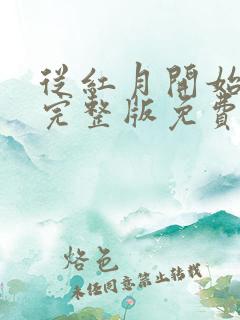 從紅月開始
完整版免費
烙色
未经同意禁止转载